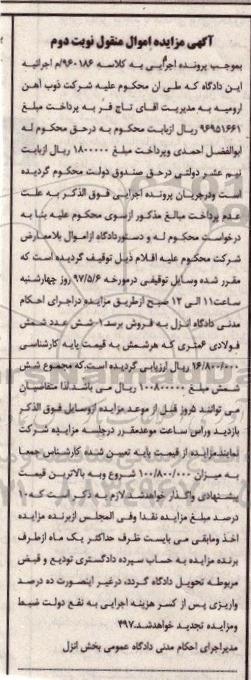 آگهی مزایده اموال منقول نوبت دوم
بموجب پرونده اجرایی به کلاسه ۹۶۰۱۸۶/م اجرائیه
این دادگاه که طی ان محکوم علیه شرکت ذوب آهن
ارومیه به مدیریت اقای تاج فر به پرداخت مبلغ
۹۶۹۵۱۶۶۱ ریال ازبابت محکوم به درحق محکوم له
ابوالفضل احمدی وپرداخت مبلغ ۱۸۰۰۰۰۰ ریال ازبابت
نیم عشر دولتی درحق صندوق دولت محکوم گردیده
است ودرجریان پرونده اجرایی فوق الذکر به علت
عدم پرداخت مبالغ مذکور ازسوی محکوم علیه بنا به
درخواست محکوم له و دستوردادگاه ازاموال بلامعارض
شرکت محکوم علیه اقلام ذیل توقیف گردیده است که
مقرر شده وسایل توقیفی درمورخه ۹۷/۵/۶ روز چهارشنبه
ساعت ۱۱ الی ۱۲ صبح ازطریق مزایده دراجرای احکام
مدنی دادگاه انزل به فروش برسد ۱- شش عدد شمش
فولادی ۶متری که هرشمش به قیمت پایه کارشناسی
۱۶/۸۰۰/۰۰۰ ریال ارزیابی گردیده است.که مجموع شش
شمش مبلغ ۱۰۰۸۰۰۰۰۰ ریال می باشد لذا متقاضیان
می توانند ۵روز قبل از موعد مزایده ازوسایل فوق الذکر
بازدید وراس ساعت موعدمقرر درجلسه مزایده شرکت
نمایند.مزایده از قیمت پایه تعیین شده کارشناس جمعا
به میزان ۱۰۰/۸۰۰/۰۰۰ شروع وبه بالاترین قیمت
پیشنهادی واگذار خواهدشد لازم به ذکر است که۱۰
درصد مبلغ مزایده نقدا وفی المجلس ازبرنده مزایده
اخذ ومابقی می بایست ظرف حداکثر یک ماه ازطرف
برنده مزایده به حساب سپرده دادگستری تودیع و قبض
مربوطه تحویل دادگاه گردد، درغیر اینصورت ده درصد
واریزی پس از کسر هزینه اجرایی به نفع دولت ضبط
ومزایده تجدید خواهدشد.۴۹۷
مدیراجرای احکام مدنی دادگاه عمومی بخش انزل